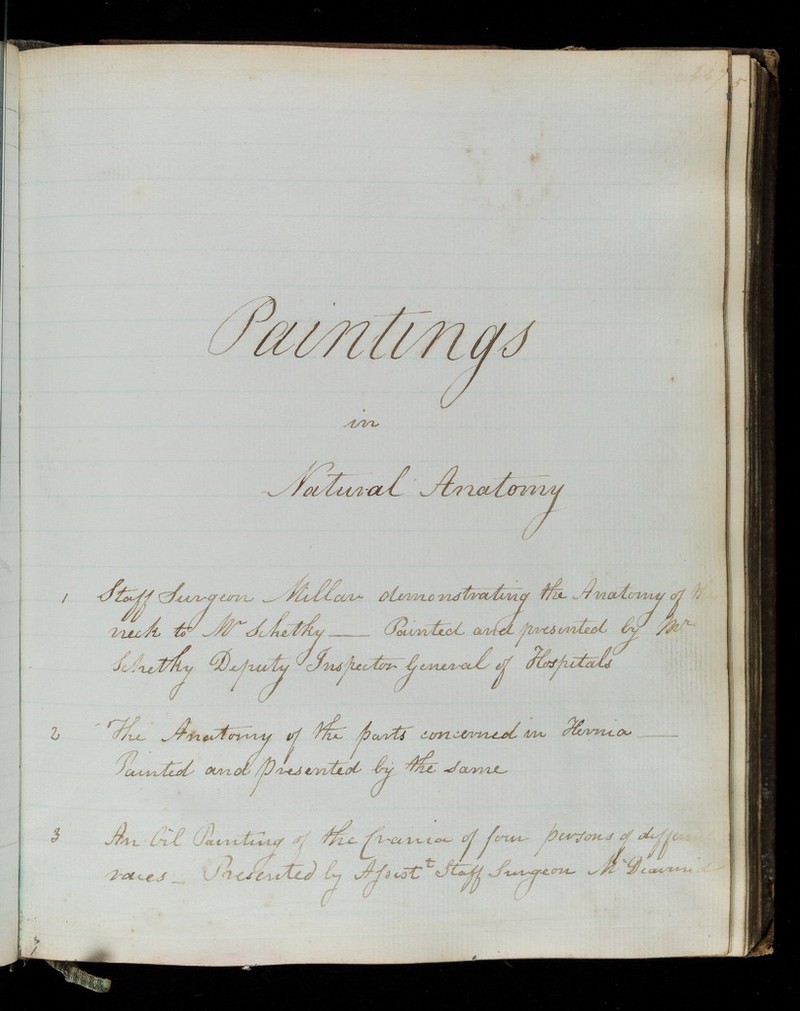 Paintings
in
Natural Anatomy
1 Staff Surgeon Millar demonstrating the Anatomy of the
neck to Mr Schetky — Painted and presented by Mr
Schetky Deputy Inspector General of Hospitals
2 The Anatomy of the parts concerned in Hernia —
Painted and presented by the same
3 An Oil Painting of the Crania of four persons of different
races — Presented by Assistt Staff Surgeon